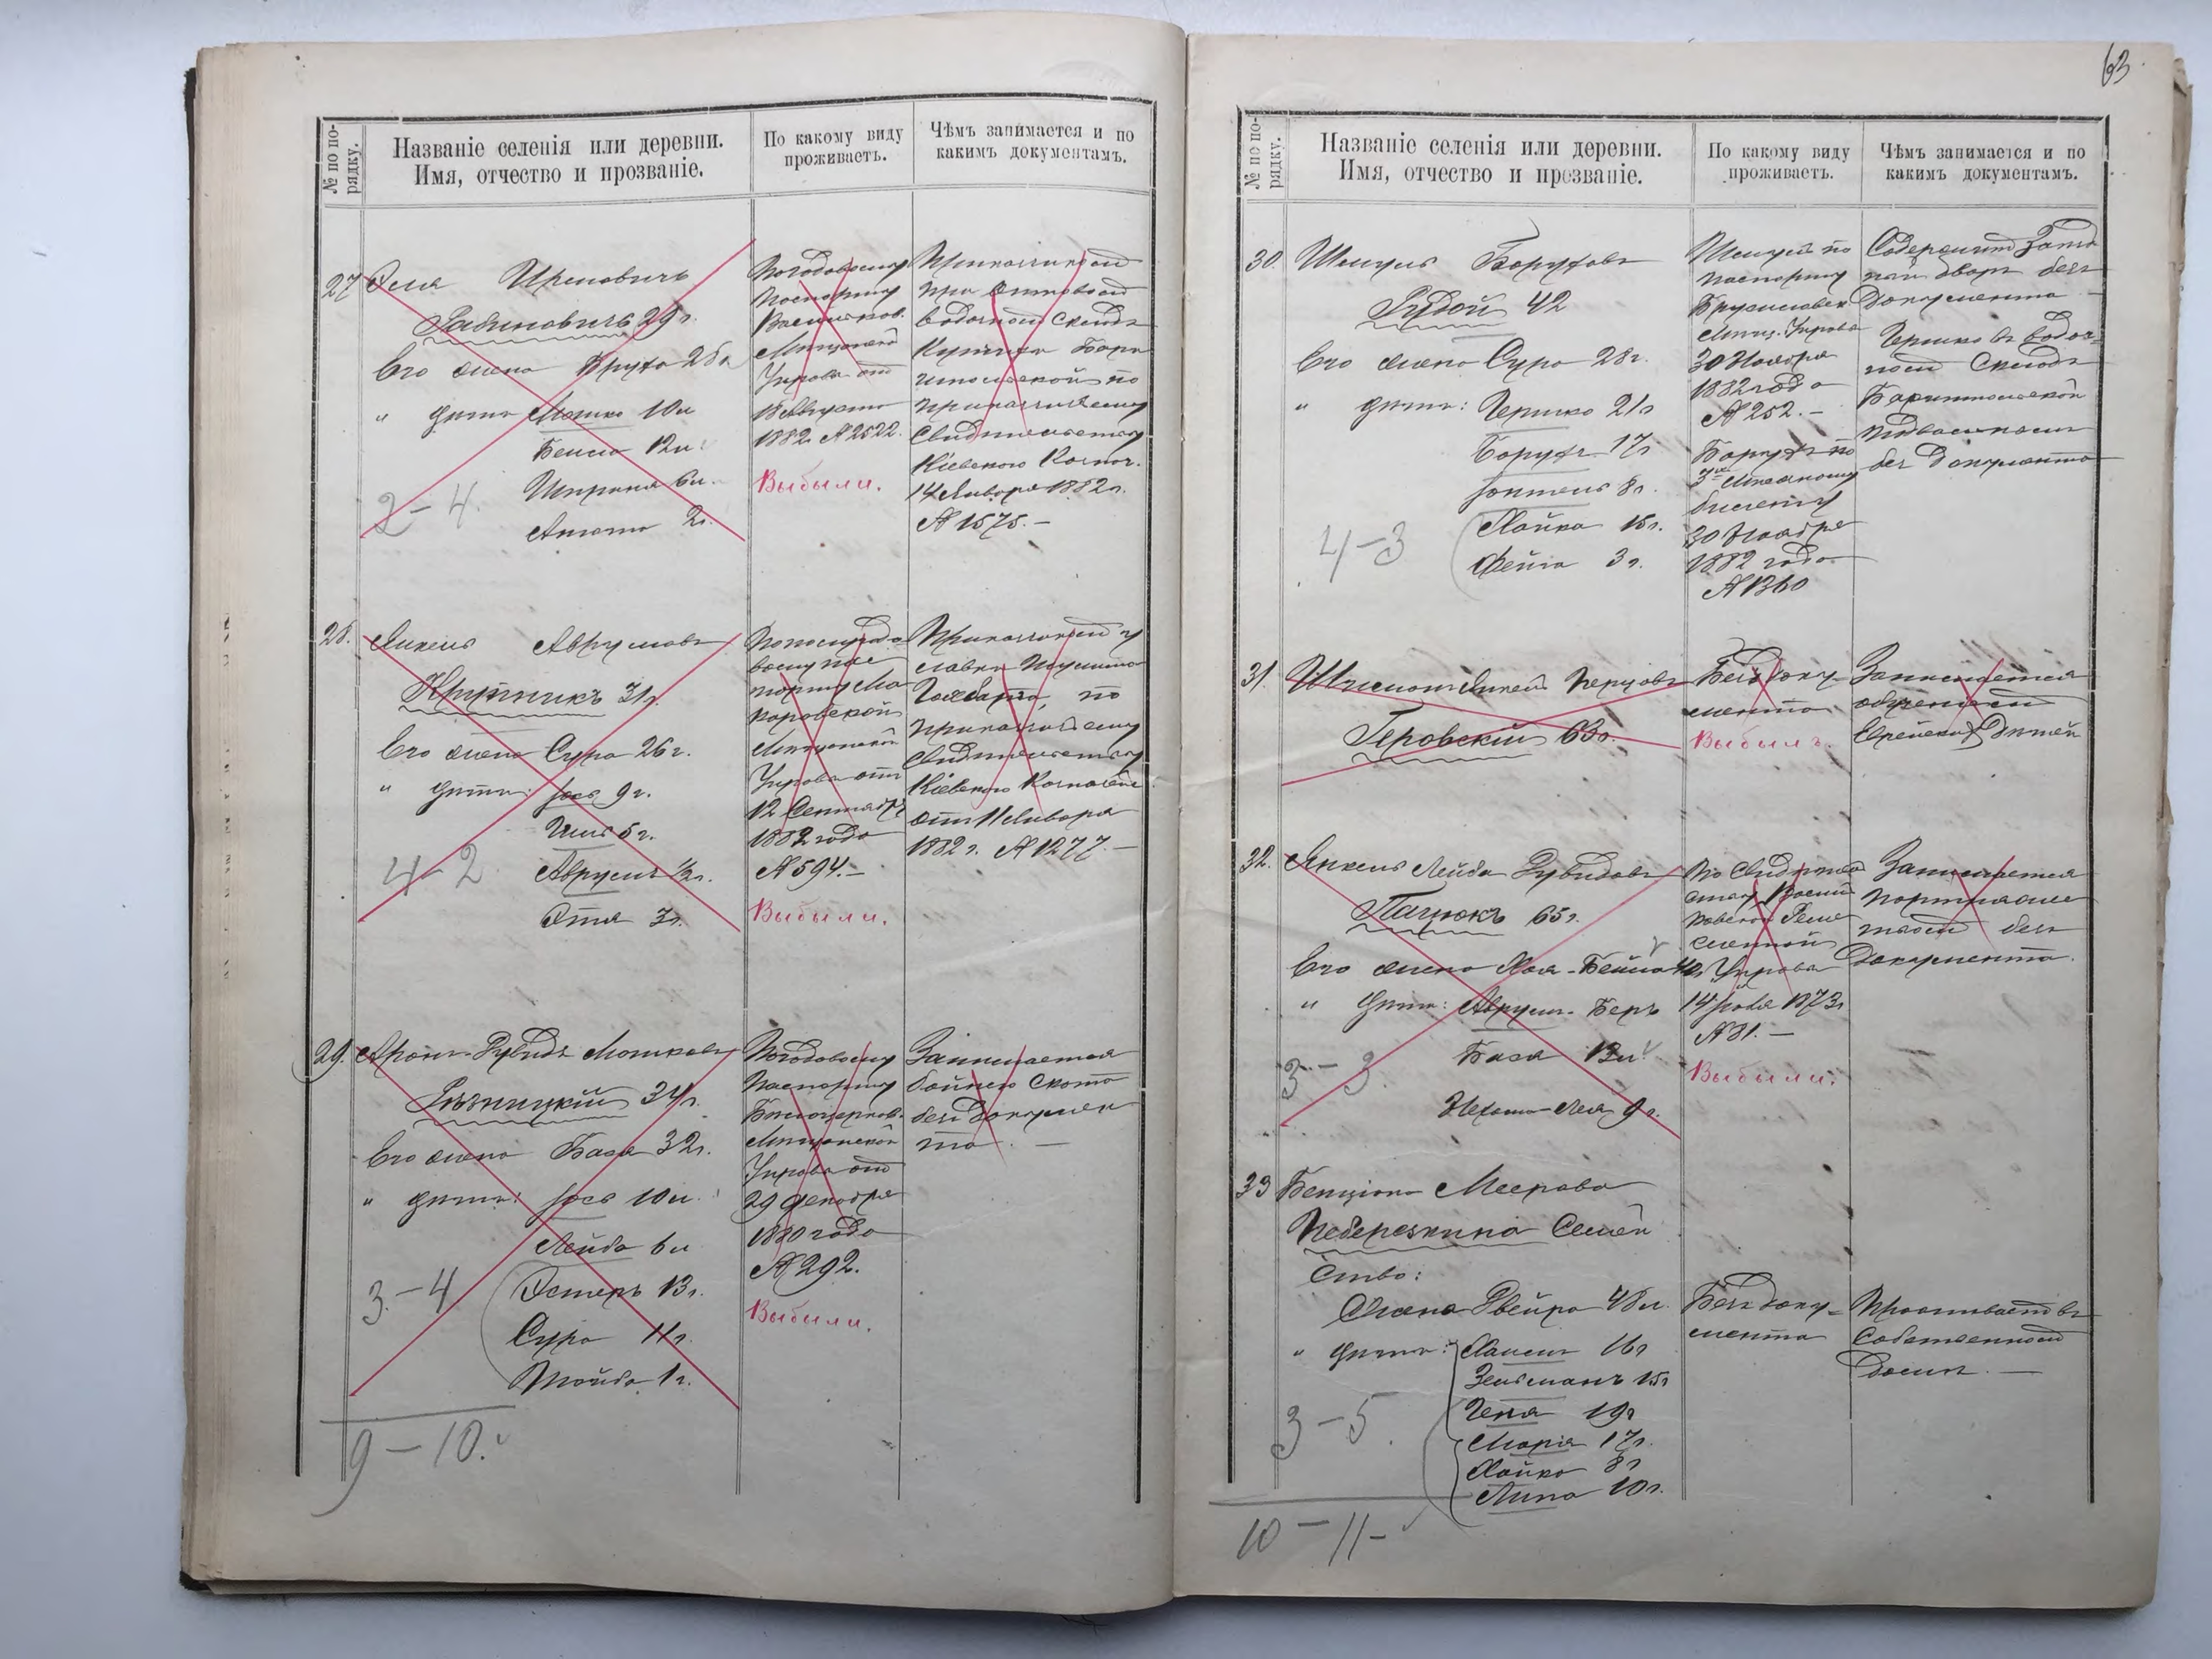 № по по-
рядку.
Названіе селенія или деревни.
Имя, отчество и прозваніе.
По какому виду
проживаетъ.
Чѣмъ занимается и по
какимъ документамъ.
27
Рабиновичъ 29 г.
Его жена Бруха 25 л
" дѣти Мошко 10 л
Бенюм 12 л.
Шпринца 6 л.
2 – 4.
Погодовому
паспорту
Васильков.
Мѣщанской
Управы от
18 Августа
1882 № 2522.
Выбыли.
Прикащикомъ
при оптовом
водочном складе
Купчихи
по
прикащичьему
Свидетельству
Кіевского Казнач.
14 Января 1882 г.
№ 1575. –
28.
Янкель Аврумовъ
Крупникъ 31 г.
Его жена Сура 26 г.
" дѣти: Іось 9 г.
5 г.
Аврумъ ½ г.
Этя 3 г.
4 – 2
Макаровской
Мѣщанской
Управы отъ
12 Сентября
1882 года
№ 594. –
Выбыли.
Прикащикомъ у
по
прикащичьему
Свидетельству
Кіевского Казначейс
отъ 11 Января
1882 г. № 1277. –
29.
Аронъ-Рувидъ Мошковъ
Рѣзницкій 34 г.
Его жена Бася 32 г.
" дѣти: Іось 10 л.
Лейба 6 л
Эстеръ 13 г.
Сура 11 г.
1 г.
3. – 4
Погодовому
Паспорту
Бѣлоцерков.
Мѣщанской
Управы от
29 Декабря
1880 года
№ 292.
Выбыли.
Занимается
бойнею скота
безъ докумен
та. –
9 – 10.
63.
№ по по-
рядку.
Названіе селенія или деревни.
Имя, отчество и прозваніе.
По какому виду
проживаетъ.
Чѣмъ занимается и по
какимъ документамъ.
30.
Шмуль Боруховъ
Рудой 42
Его жена Сура 28 г.
" дѣти: Гершко 21 г
Борухъ 17 г
8 г.
Хайка 15 г.
Фейга 3 г.
4 – 3
Шмуль по
паспорту
Брусиловск
Мѣщ. Управы
30 Ноября
1882 года
№ 252. –
Борухъ по
билету
30 Ноября
1882 года
№ 1360
Содержит Заез
жій дворъ безъ
документа –
Гершко въ водоч=
номъ складе
без документа
31.
Герцовъ
Геровскій 63 г.
Безъ доку-
мента
Выбылъ.
Занимается
обучением
Еврейских дѣтей
32.
Янкель Лейба Рувидовъ
Пацюкъ 65 г.
Его жена Хая-Бейла 40 г
" дѣти: Аврум-Беръ
Бася 13 л
Нехама-Лея 9 г.
3 – 3.
По Свидѣтель
ству Василь
ковской Реме
сленной
Управы
14 1873 г
№ 81. –
Выбыли.
Занимается
портняже
ством безъ
документа.
33
Бенціона Меерова
Побережкина Семей
ство:
Жена Двейра 48 л.
" дѣти: 16 г
Зельманъ 15 г
Геня 19 г
Марія 17 г.
Хайка 8 г
10 г.
3 – 5.
Безъ доку=
мента
Проживает въ
собственном
домѣ. –
10 – 11 –